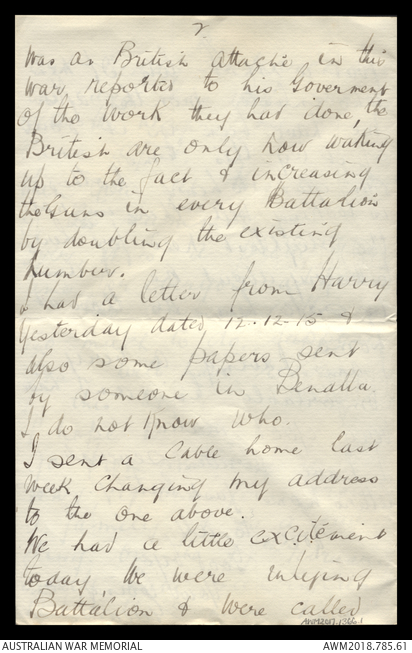 2
was an British attache in this
war, reported to his Goverment
of the work they had done, the
British are only now waking
up to the fact & increasing
the Guns in every Battalion
by doubling the existing
number.
I had a letter from Harry
yesterday dated 12-12-15 &
also some papers sent
by someone in Benalla
I do not know who.
I sent a Cable home last
week changing my address
to the one above.
We had a little excitement
today We were
Battalion & were called
AUSTRALIAN WAR MEMORIAL
AWM2018.785.61